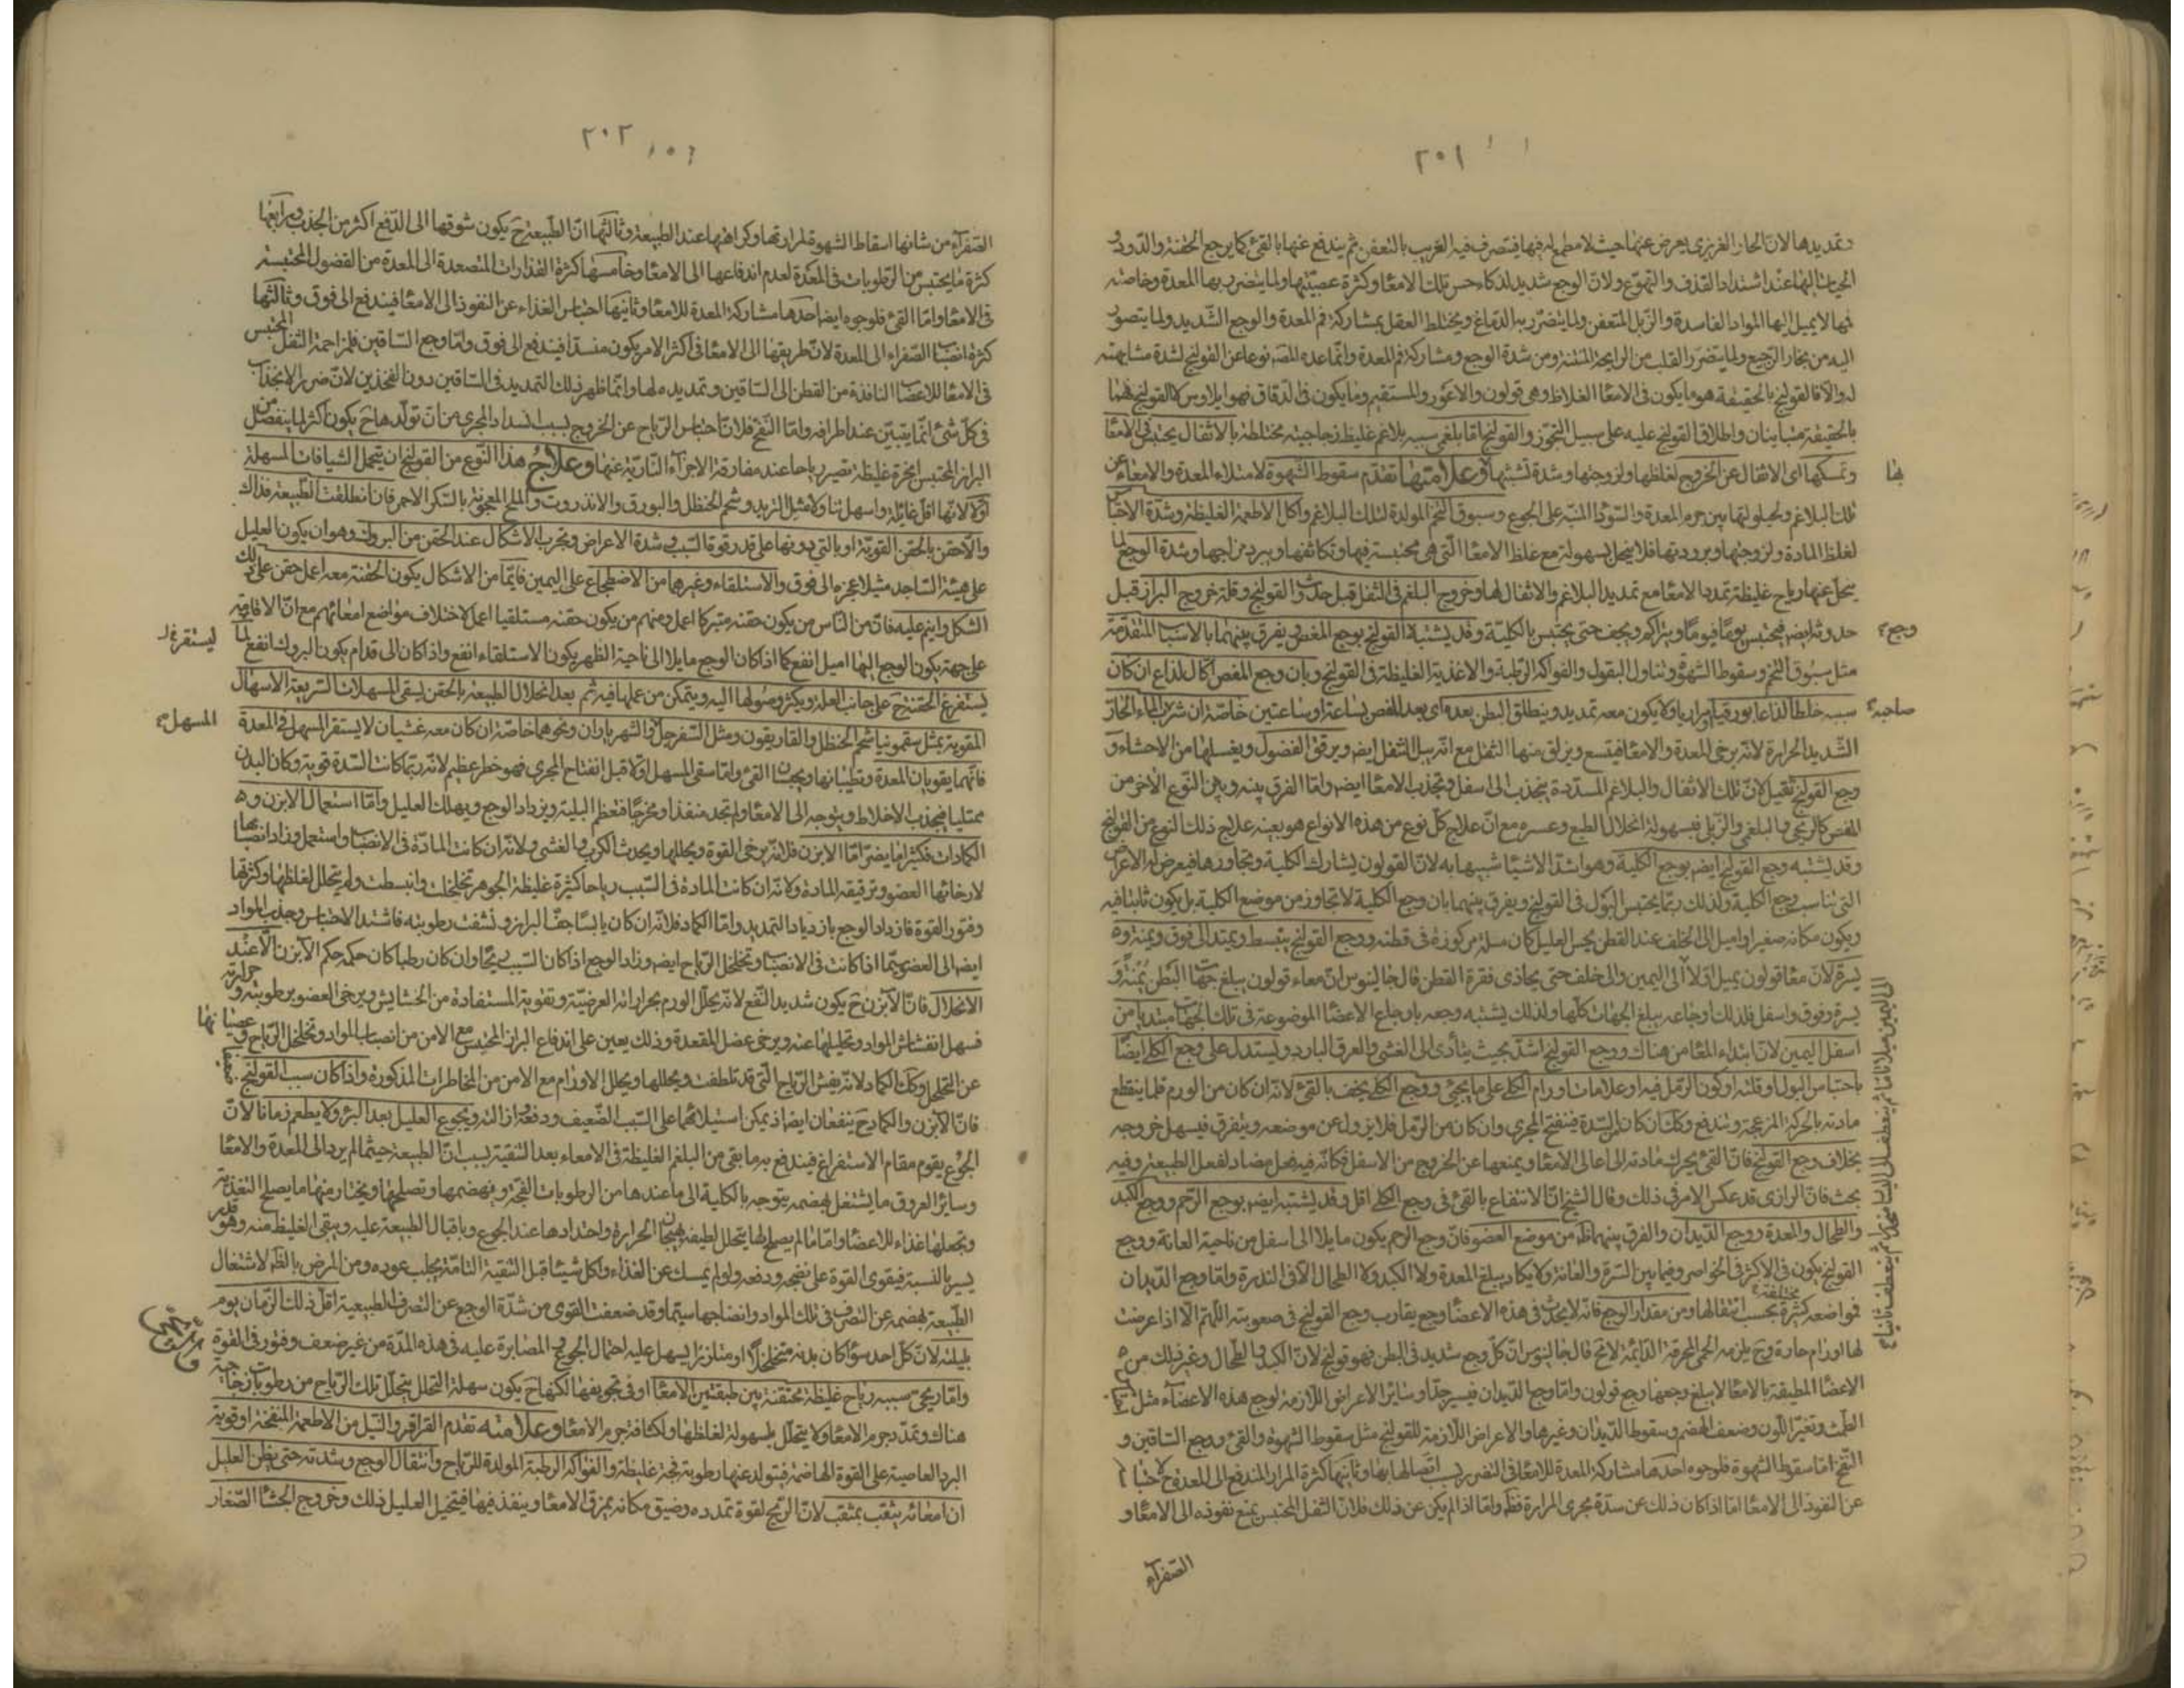 ٢٠١
وتمديدها لان الحار الغريزى يعرض عنها حيث لا مطمع له فيها فيتصرف فيه الغريب بالتعفن ثم يندفع عنها بالقئ كما يرجع الحقنة والدود و
الحيات ايها عند اشتداد القذف والتهوع ولان الوجع شديد لذكاء حس تلك الامعا وكثرة عصبيتها ولما يتضرر بها المعدة وخاصة
فمها لا يميل اليها المواد الفاسدة والزبل المتعفن ولما يتضرر به الدماغ ويختلط العقل بمشاركة فم المعدة والوجع الشديد ولما يتصور
اليه من بخار الرجيع ولما يتضرر القلب من الرايحة المنتنة ومن شدة الوجع ومشاركة فم المعدة وانما عده المصـ نوعا عن القولنج لشدة مشابهته
له والا فالقولنج بالحقيقة هو ما يكون فى الامعا الغلاظ وهى قولون والاعور والمستقيم وما يكون فى الدقاق فهو ايلاوس كالقولنج فهما
بالحقيقة متباينان واطلاق القولنج عليه على سبيل التجوز والقولنج اما بلغمى سببه بلاغم غليظ زجاجية مختلطة بالاثقال يحتبس فى الامعا
وتمسكها اى الاثقال عن الخروج لغلظها ولزوجتها وشدة تشبثها وعلامتها تقدم سقوط الشهوة لامتلاء المعدة والامعاء عن
بها
تلك البلاغم ولحيلولتها بين جرم المعدة والسودا المنبه على الجوع وسبوق التخم المولدة لتلك البلاغم واكل الاطعمة الغليظة وشدة الاحتباس
لغلظ المادة ولزوجتها وبرودتها فلا ينحل بسهولة مع غلظ الامعا التى هى محتبسة فيها وتكاثفها وبرد مزاجها وشدة الوجع لما
ينحل عنها رياح غليظة تمدد الامعا مع تمديد البلاغم والاثقال لها وخروج البلغم فى الثفل قبل حدوث القولنج وقلة خروج البراز قبل
حدوثه ايضا فيحتبس يوما فيوما ويتراكم ويجف حتى يحتبس بالكلية وقد يشتبه القولنج بوجع المغص ويفرق بينهما بالاسباب المتقدمة
وجع
مثل سبوق التخم وسقوط الشهوة وتناول البقول والفواكه الرطبة والاغذية الغليظة فى القولنج وبان وجع المغص اكال لذاع ان كان
سببه خلطا لذاعا بورقيا مراريا ولا يكون معه تمديد وينطلق البطن بعده اى بعد المغص بساعة او ساعتين خاصة ان شرب الماء الحار
صاحبه
الشديد الحرارة لانه يرخى المعدة والامعا فيتسع ويزلق منها الثفل مع انه يبل الثفل ايضـ ويرقق الفضول ويغسلها من الاحشاء و
وجع القولنج ثقيل لان تلك الاثقال والبلاغم المسددة ينجذب الى اسفل وتجذب الامعا ايضـ واما الفرق بينه وبين النوع الاخر من
المغص كالريحى والبلغمى والزبل فبسهولة انحلال الطبع وعسره مع ان علاج كل نوع من هذه الانواع هو بعينه علاج ذلك النوع من القولنج
وقد يشتبه وجع القولنج ايضـ بوجع الكلية وهو اشد الاشيا شبيها به لان القولون يشارك الكلية ويجاورها فيعرض له الاعراض
التى تناسب وجع الكلية ولذلك ربما يحتبس البول فى القولنج ويفرق بينهما بان وجع الكلية لا يتجاوز من موضع الكلية بل يكون ثابتا فيه
ويكون مكانه صغيرا واميل الى الخلف عند القطن يحس العليل كان مسلة مركوزة فى قطنه ووجع القولنج ينبسط ويمتد الى فوق ويمنة و
يسرة لان معا قولون يميل اولا الى اليمين والى خلف حتى يحاذى فقرة القطن قال جالينوس ان معاء قولون يبلغ جهات البطن يمنة و
يسرة وفوق واسفل فلذلك اوجاعه يبلغ الجهات كلها ولذلك يشتبه وجعه باوجاع الاعضا الموضوعة فى تلك الجهات مبتديا من
اسفل اليمين لان ابتداء المعا من هناك ووجع القولنج اشد بحيث يتأدى الى الغشى والعرق البارد ويستدل على وجع الكلى ايضا
باحتباس البول او قلته او كون الرمل فيه او علامات اورام الكلى على ما يجئ ووجع الكلى يخف بالقئ لانه ان كان من الورم فلما ينقطع
مادته بالحركة المزعجة وتندفع وكذلك ان كان السدة فينفتح المجرى وان كان من الرمل فلا يزول عن موضعه ويتفرق فيسهل خروجه
بخلاف وجع القولنج فان القئ يحرك مادته الى اعالى الامعا ويمنعها عن الخروج من الاسفل فكانه فيه فعل مضاد لفعل الطبيعة وفيه
بحث فان الرازى قد عكس الامر فى ذلك وقال الشيخ ان الانتفاع بالقئ فى وجع الكلى اقل وقد يشتبه ايضـ بوجع الرحم ووجع الكبد
والطحال والمعدة ووجع الديدان والفرق بينهما ظـ من موضع العضو فان وجع الرحم يكون مايلا الى اسفل من ناحية العانة ووجع
القولنج يكون فى الاكثر فى الخواصر وفيما بين السرة والعانة ولا يكاد يبلغ المعدة ولا الكبد ولا الطحال الا فى الندرة واما وجع الديدان
فمواضعه كثيرة مختلفة بحسب انتقالها ومن مقدار الوجع فانه لا يحدث فى هذه الاعضا وجع يقارب وجع القولنج فى صعوبته اللهم الا اذا عرضت
لها اورام حارة وح يلزمه الحمى المحرقة الدائمة لا تخـ قال جالينوس ان كل وجع شديد فى البطن فهو قولنج لان الكبد والطحال وغير ذلك من
الاعضا المطيفة بالامعا لا يبلغ وجعها وجع قولون واما وجع الديدان فيسير جدا وسائر الاعراض اللازمة لوجع هذه الاعضاء مثل
الطمث وتغير اللون وضعف الهضم وسقوط الديدان وغيرها والاعراض اللازمة للقولنج مثل سقوط الشهوة والقئ ووجع الساقين و
النفخ اما سقوط الشهوة فلوجوه احدها مشاركة المعدة للامعا فى التضرر بسبب اتصالها بها وثانيها كثرة المرار المندفع الى المعدة ح لاحتباسها
عن النفوذ الى الامعا اما اذا كان ذلك عن سدة مجرى المرارة فظـ واما اذا لم يكن عن ذلك فلان الثفل المحتبس يمنع نفوذه الى الامعا و
الى اليمين ميلا تاما ثم ينعطف الى اليسار منحدرا ثم ينعطف ثانيا
الصفراء
٢٠٢
الصفراء من شانها اسقاط الشهوة لمرارتها وكراهتها عند الطبيعة وثالثها ان الطبيعة ح يكون شوقها الى الدفع اكثر من الجذب ورابعها
كثرة ما يحتبس من الرطوبات فى المعدة لعدم اندفاعها الى الامعا وخامسها كثرة القذارات المتصعدة الى المعدة من الفضول المحتبسة
فى الامعا واما القئ فلوجوه ايضـ احدها مشاركة المعدة للامعا وثانيها احتباس الغذاء عن النفوذ الى الامعا فيندفع الى فوق وثالثها
كثرة انصباب الصفراء الى المعدة لان طريقها الى الامعا فى اكثر الامر يكون منسدا فيندفع الى فوق واما وجع الساقين فلمزاحمة الثفل المحتبس
فى الامعا للاعضاء النافذة من القطن الى الساقين وتمديده لها وانما ظهر ذلك التمديد فى الساقين دون الفخذين لان ضرر الانجذاب
فى كل شئ انما يتبين عند اطرافه واما النفخ فلان احتباس الرياح عن الخروج بسبب انسداد المجرى من ان تولدها ح يكون اكثر لما ينفصل من
البراز المحتبس ابخرة غليظة تصير رياحا عند مفارقة الاجزاء النارية عنها وعلاج هذا النوع من القولنج ان يتحمل الشيافات المسهلة
اولا لانها اقل غائلة واسهل تناولا مثل التربد وشحم الحنظل والبورق والانذروت والملح المعجونة بالسكر الاحمر فان انطلقت الطبيعة فذاك
والا حقن بالحقن القوية او بالتى دونها على قدر قوة السبب وشدة الاعراض ويجرب الاشكال عند الحقن من البروك وهو ان يكون العليل
على هيئة الساجد مشيلا عجزه الى فوق والاستلقاء وغيرهما من الاضطجاع على اليمين فايما من الاشكال يكون الحقنة معه اعمل حقن على ذلك
الشكل وانيم عليه فان من الناس من يكون حقنه متبركا اعمل ومنهم من يكون حقنه مستلقيا اعمل لاختلاف مواضع امعائهم مع ان الاقامة
على جهة يكون الوجع اليها اميل انفع كما اذا كان الوجع مايلا الى ناحية الظهر يكون الاستلقاء انفع واذا كان الى قدام يكون البروك انفع لما
ليستقر
يستفرغ الحقنة ح على جانب العلة ويكثر وصولها اليه ويتمكن من عملها فيه ثم بعد انحلال الطبيعة بالحقن يسقى المسهلات السريعة الاسهال
المقوية بمثل سقمونيا وشحم الحنظل والغاريقون ومثل السفرجلى والشهرياران ونحوهما خاصة ان كان معه غشيان لا يستقر المسهل فى المعدة
المسهل
فانهما يقويان المعدة وتطيبانها ويجبان القئ واما سقى المسهل اولا قبل انفتاح المجرى فهو خطر عظيم لانه ربما كانت السدة قوية وكان البدن
ممتليا فينجذب الاخلاط ويتوجه الى الامعا ولم تجد منفذا ومخرجا فتعظم البلية ويزداد الوجع ويهلك العليل واما استعمال الابزن و
الكمادات فكثيرا ما يضر اما الابزن فلانه يرخى القوة ويحللها ويحدث الكرب والغشى ولانه ان كانت المادة فى الانصباب واستعمل وزاد انصبابها
لارخائها العضو وترقيقه المادة ولانه ان كانت المادة فى السبب رياحا كثيرة غليظة الجوهر تخلخلت وانبسطت ولم يتحلل لغلظها وكثرتها
وفتور القوة فازداد الوجع بازدياد التمديد واما الكماد فلانه ان كان يابسا جفف البراز ونشفت رطوبته فاشتد الاحتباس وجذب المواد
ايضـ الى العضو سيما اذا كانت فى الانصباب وتخلخل الرياح ايضـ وزاد الوجع اذا كان السبب ريحا وان كان رطبا كان حكمه حكم الابزن الا عند
الانحلال فان الابزن ح يكون شديد النفع لانه يحلل الورم بحرارته العرضية وتقوية المستفادة من الحشايش ويرخى العضو برطوبته وحرارته
فسهل انفشاش المواد وتحليلها عنه ويرخى عضل المقعدة وذلك يعين على اندفاع البراز المحتبس مع الامن من انصباب المواد وتخلخل الرياح و
عن التحلل وكذلك الكماد لانه يفش الرياح التى قد تلطفت ويحللها ويحلل الاورام مع الامن من المخاطرات المذكورة واذا كان سبب القولنج ضعيفا
فان الابزن والكماد ح ينفعان ايضـ اذ يمكن استيلائهما على السبب الضعيف ودفعه وازالته ويجوع العليل بعد البرء ولا يطعم زمانا لان
الجوع يقوم مقام الاستفراغ فيندفع به ما بقى من البلغم الغليظة فى الامعاء بعد التنقية بسبب ان الطبيعة حيثما لم يرد الى المعدة والامعا
وسائر العروق ما يشتغل بهضمه يتوجه بالكلية الى ما عندها من الرطوبات الفجة وبهضمها وتصلحها ويختار منها ما يصلح التغذية
وتجعلها غذاء للاعضا واما ما لم يصلح لها يتحلل لطيفه بهيجان الحرارة واحتدادها عند الجوع وباقبال الطبيعة عليه ويبقى الغليظ منه وهو قدر
يسير بالنسبة فيقوى القوة على نضجه ودفعه ولو لم يمسك عن الغذاء واكل شيئا قبل التنقية التامة يجلب عوده ومن المرض بالظـ لاشتغال
الطبيعة بهضمه عن التصرف فى تلك المواد وانضاجها سيما وقد ضعفت القوى من شدة الوجع عن التصرف الطبيعية اقل ذلك الزمان يوم
بليلته لان كل احد سواء كان بدنه متخلخلا او متلززا يسهل عليه احتمال الجوع والمصابرة عليه فى هذه المدة من غير ضعف وفتور فى القوة
واما ريحى سببه رياح غليظة محتقنة بين طبقتين الامعا او فى تجويفها لكنها ح يكون سهلة التحلل يتحلل تلك الرياح من رطوبات زجاجية
هناك وتمدد جرم الامعا ولا يتحلل بسهولة لغلظها ولكثافة جرم الامعا وعلامته تقدم القراقر والنيل من الاطعمة المنفخة او قوية
البرد العاصية على القوة الهاضمة فيتولد عنها رطوبة فجة غليظة والفواكه الرطبة المولدة للرياح وانتقال الوجع وشدته حتى يظن العليل
ان امعائه يثقب بمثقب لان الريح لقوة تمدده وضيق مكانه يمزق الامعا وينفذ فيها فيتخيل العليل ذلك وخروج الجشا الصغار